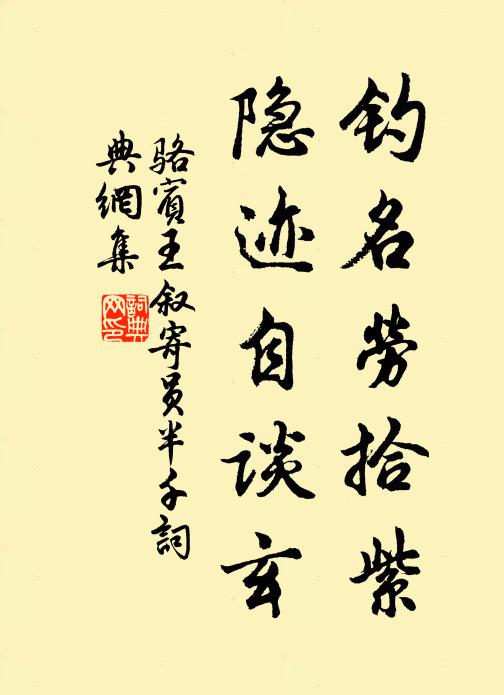 钓名劳拾紫
隐迹自谈玄
骆賓王叙寄员半千詞
典網集
詞典网印